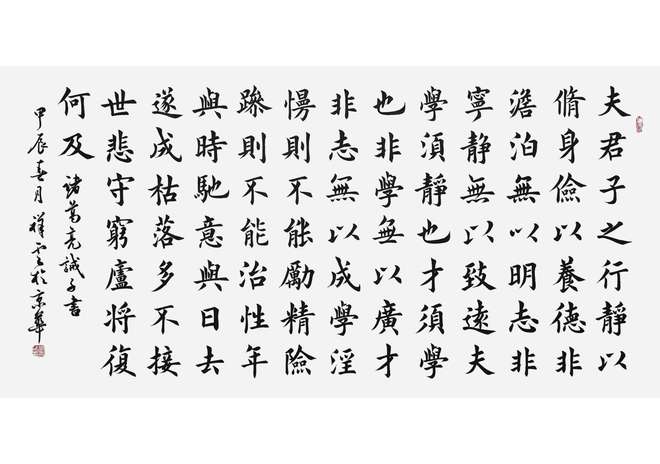 夫君子之行靜以
脩身儉以養德非
澹泊無以明志非
寧静無以致遠夫
學須靜也才須學
也非學無以廣才
非志無以成學淫
慢則不能勵精險
躁則不能治性年
與時馳意與日去
遂成枯落多不接
世悲守窮廬将復
何及 諸葛亮誡子書
甲辰春月祥云於京華